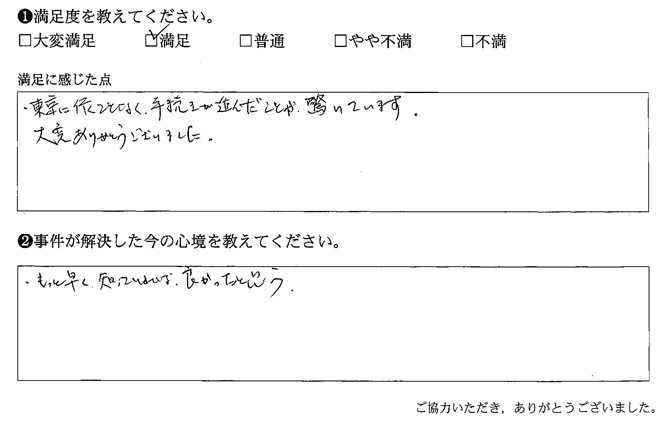 ❶満足度を教えてください。
□大変満足 ☑満足 □普通 □やや不満 □不満
満足に感じた点
・東京に行くことなく、手続きが進んだことが、驚いています。
大変ありがとうございました。
❷事件が解決した今の心境を教えてください。
・もっと早く、知っていれば、良かったと思う。
ご協力いただき，ありがとうございました。